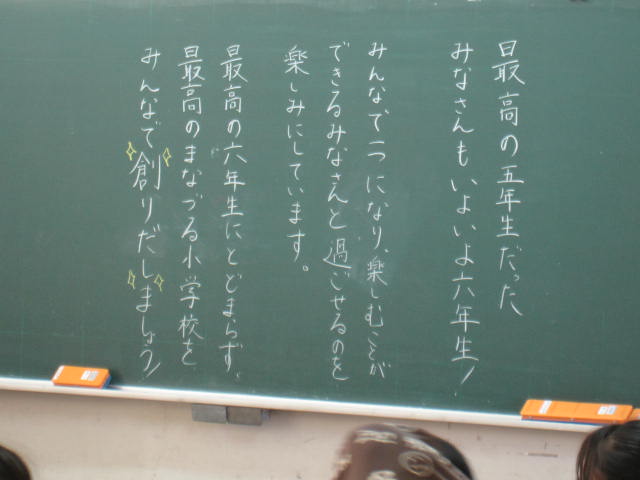 最高の五年生だった
みなさんもいよいよ六年生!
みんなで一つになり、楽しむことが
できるみなさんと過ごせるのを
楽しみにしています。
最高の六年生にとどまらず、
最高のまなづる小学校を
みんなで創りだしましょう!